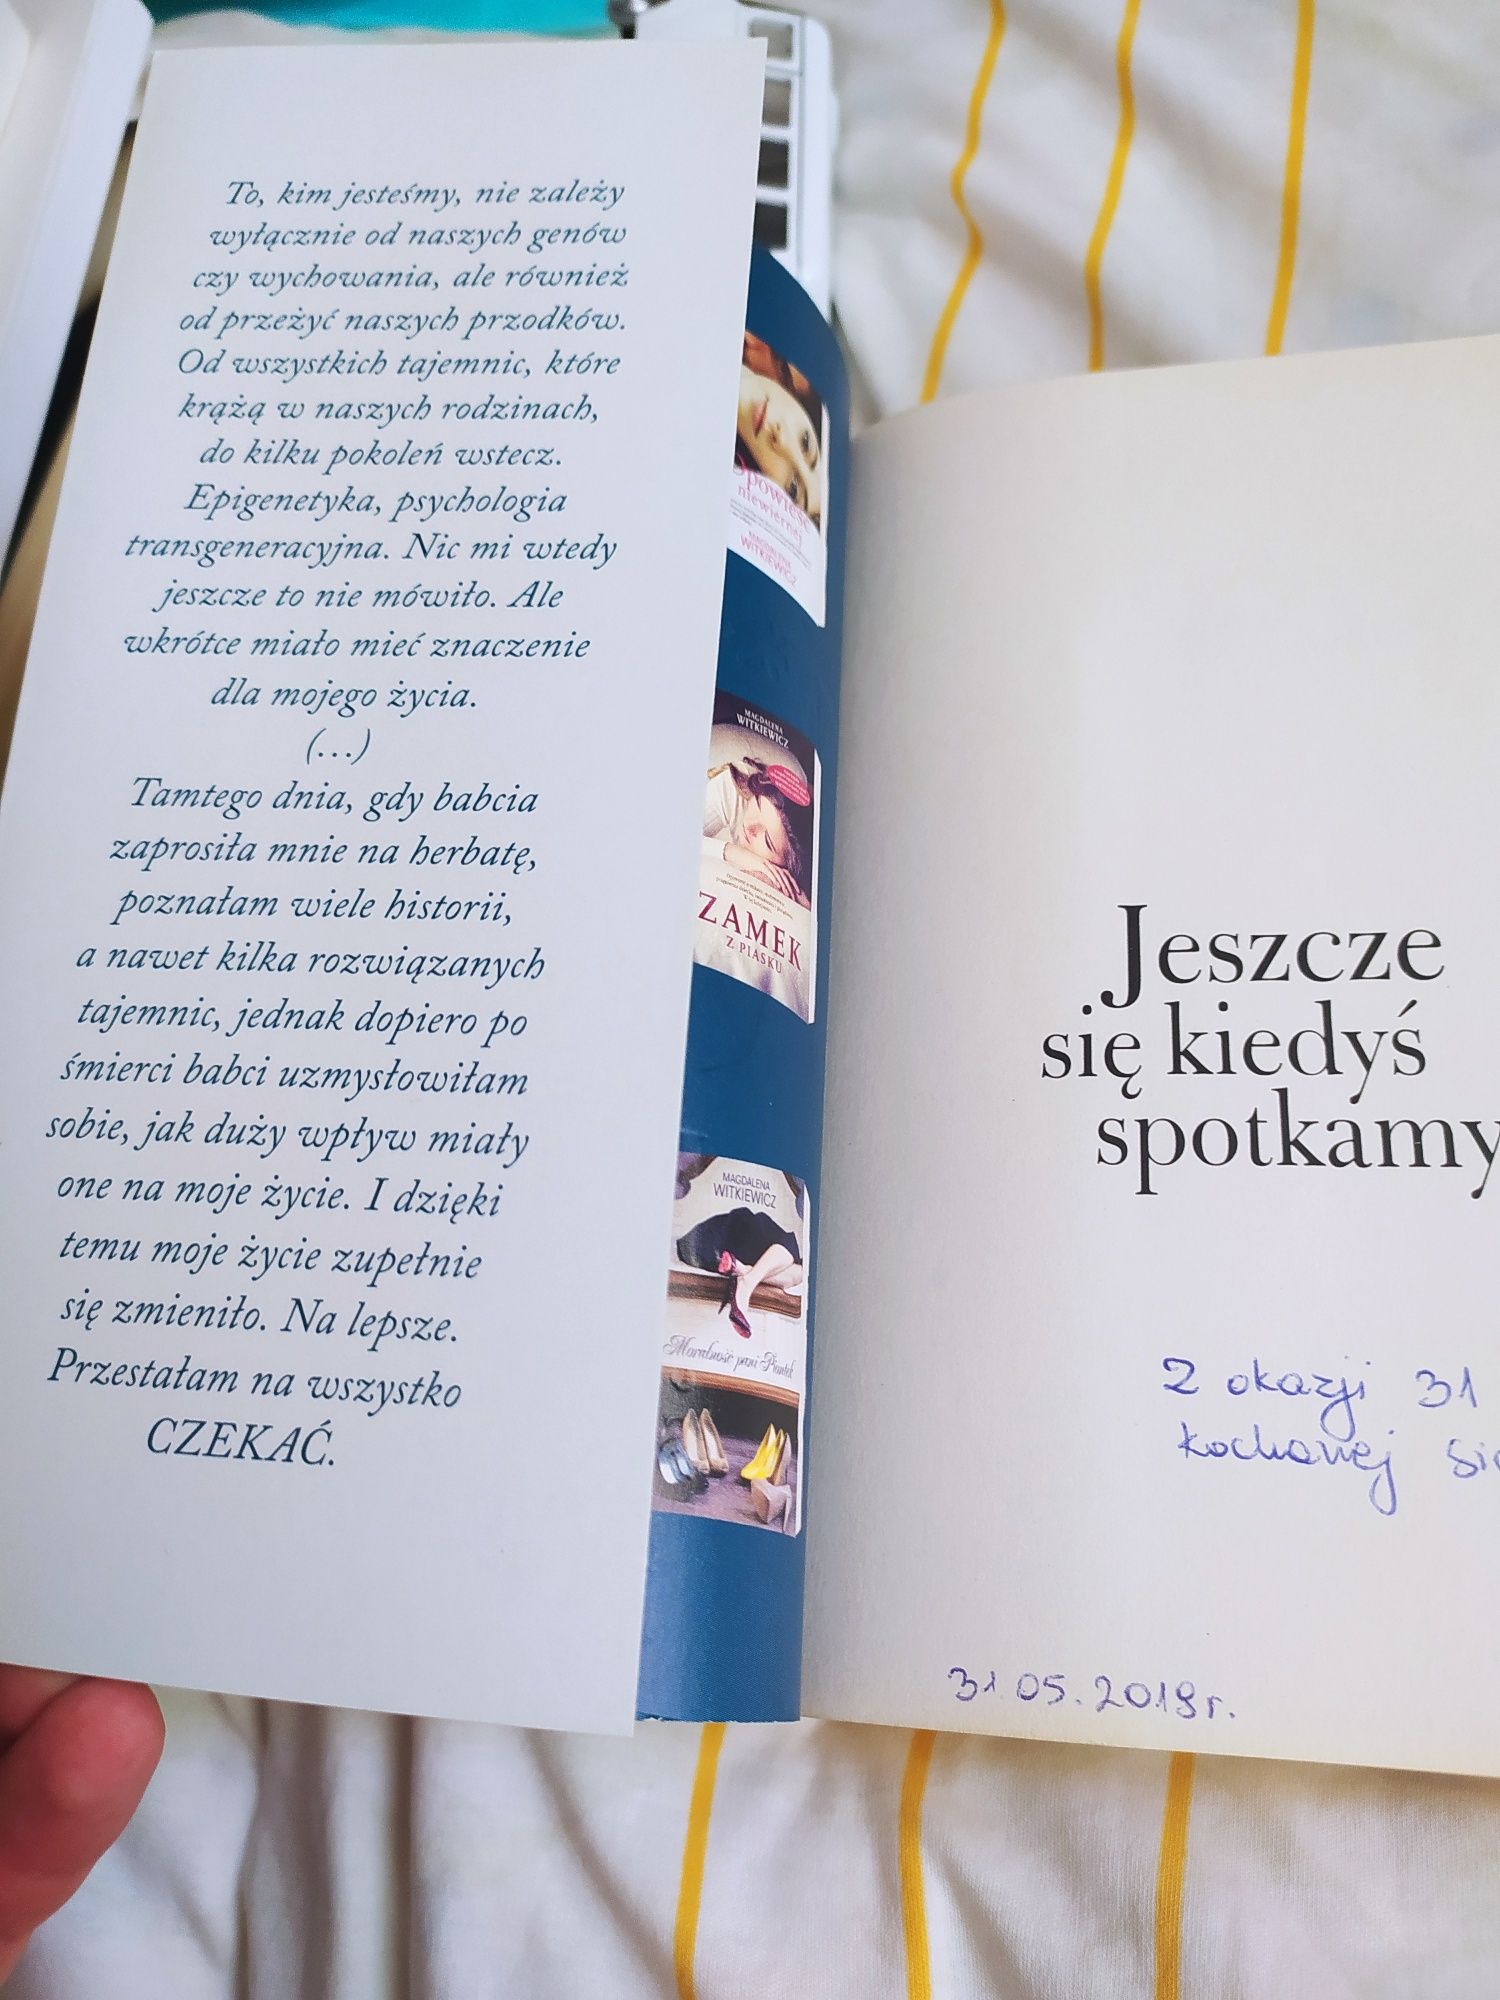 To, kim jesteśmy, nie zależy
wyłącznie od naszych genów
czy wychowania, ale również
od przeżyć naszych przodków.
Od wszystkich tajemnic, które
krążą w naszych rodzinach,
do kilku pokoleń wstecz.
Epigenetyka, psychologia
transgeneracyjna. Nic mi wtedy
jeszcze to nie mówiło. Ale
wkrótce miało mieć znaczenie
dla mojego życia.
(...)
Tamtego dnia, gdy babcia
zaprosiła mnie na herbatę,
poznałam wiele historii,
a nawet kilka rozwiązanych
tajemnic, jednak dopiero po
śmierci babci uzmysłowiłam
sobie, jak duży wpływ miały
one na moje życie. I dzięki
temu moje życie zupełnie
się zmieniło. Na lepsze.
Przestałam na wszystko
CZEKAĆ.
niewiernej
WITKIEWICZ
MAGDALENA
WITKIEWICZ
ZAMEK
Z PIASKU
MAGDALENA
WITKIEWICZ
Moralność pani Piontek
Jeszcze
się kiedyś
spotkamy
Z okazji 31
kochanej
31.05.2019r.